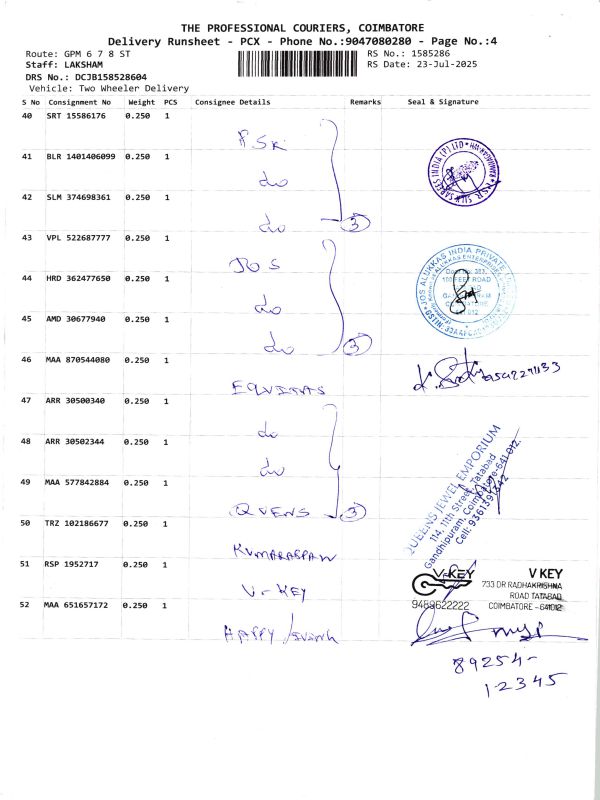 THE PROFESSIONAL COURIERS, COIMBATORE
Delivery Runsheet - PCX - Phone No.:9047080280 - Page No.:4
Route: GPM 6 7 8 ST
RS No.: 1585286
Staff: LAKSHAM
RS Date: 23-Jul-2025
DRS No.: DCJB158528604
Vehicle: Two Wheeler Delivery
S No Consignment No Weight PCS Consignee Details Remarks Seal & Signature
40 SRT 15586176 0.250 1
RSK
41 BLR 1401406099 0.250 1
do
42 SLM 374698361 0.250 1
do 3
43 VPL 522687777 0.250 1
JOS
44 HRD 362477650 0.250 1
do
45 AMD 30677940 0.250 1
do 3
46 MAA 870544080 0.250 1
EQUITAS
47 ARR 30500340 0.250 1
do
48 ARR 30502344 0.250 1
do
49 MAA 577842884 0.250 1
QUENS 3
QUEENS JEWEL EMPORIUM
114, 11th Street, Tatabad
Gandhipuram, Coimbatore-641 012.
Cell: 9361391342
50 TRZ 102186677 0.250 1
KUMARAPPAN
51 RSP 1952717 0.250 1
V-KEY
V-KEY
9489622222
V KEY
733 DR RADHAKRISHNA
ROAD TATABAD
COIMBATORE - 641012
52 MAA 651657172 0.250 1
HAPPY
89254-
12345